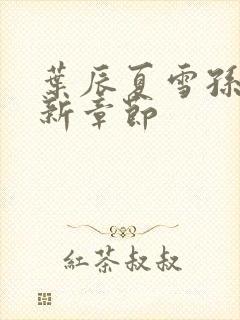 葉辰夏雪孫
新章節
紅茶叔叔